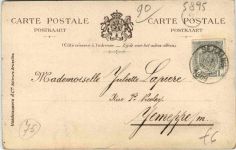 90
5895
CARTE POSTALE CARTE POSTALE
POSTKAART POSTKAART
(Côté réservé à l'adresse. — Zijde voor het adres alleen)
Mademoiselle Juliette Lapierre
Rue St Nicolas
Jemeppe s/m.
75
£6